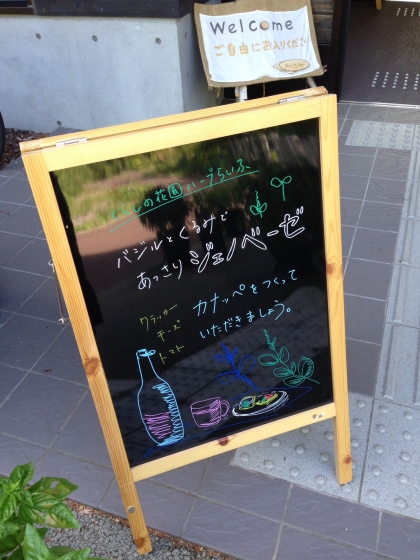 Welcome
ご自由にお入りください
の花園ハーブらいふ
バジルとくるみで
あっさりジェノベーゼ
クラッカー
チーズ
トマト
カナッペをつくって
いただきましょう。